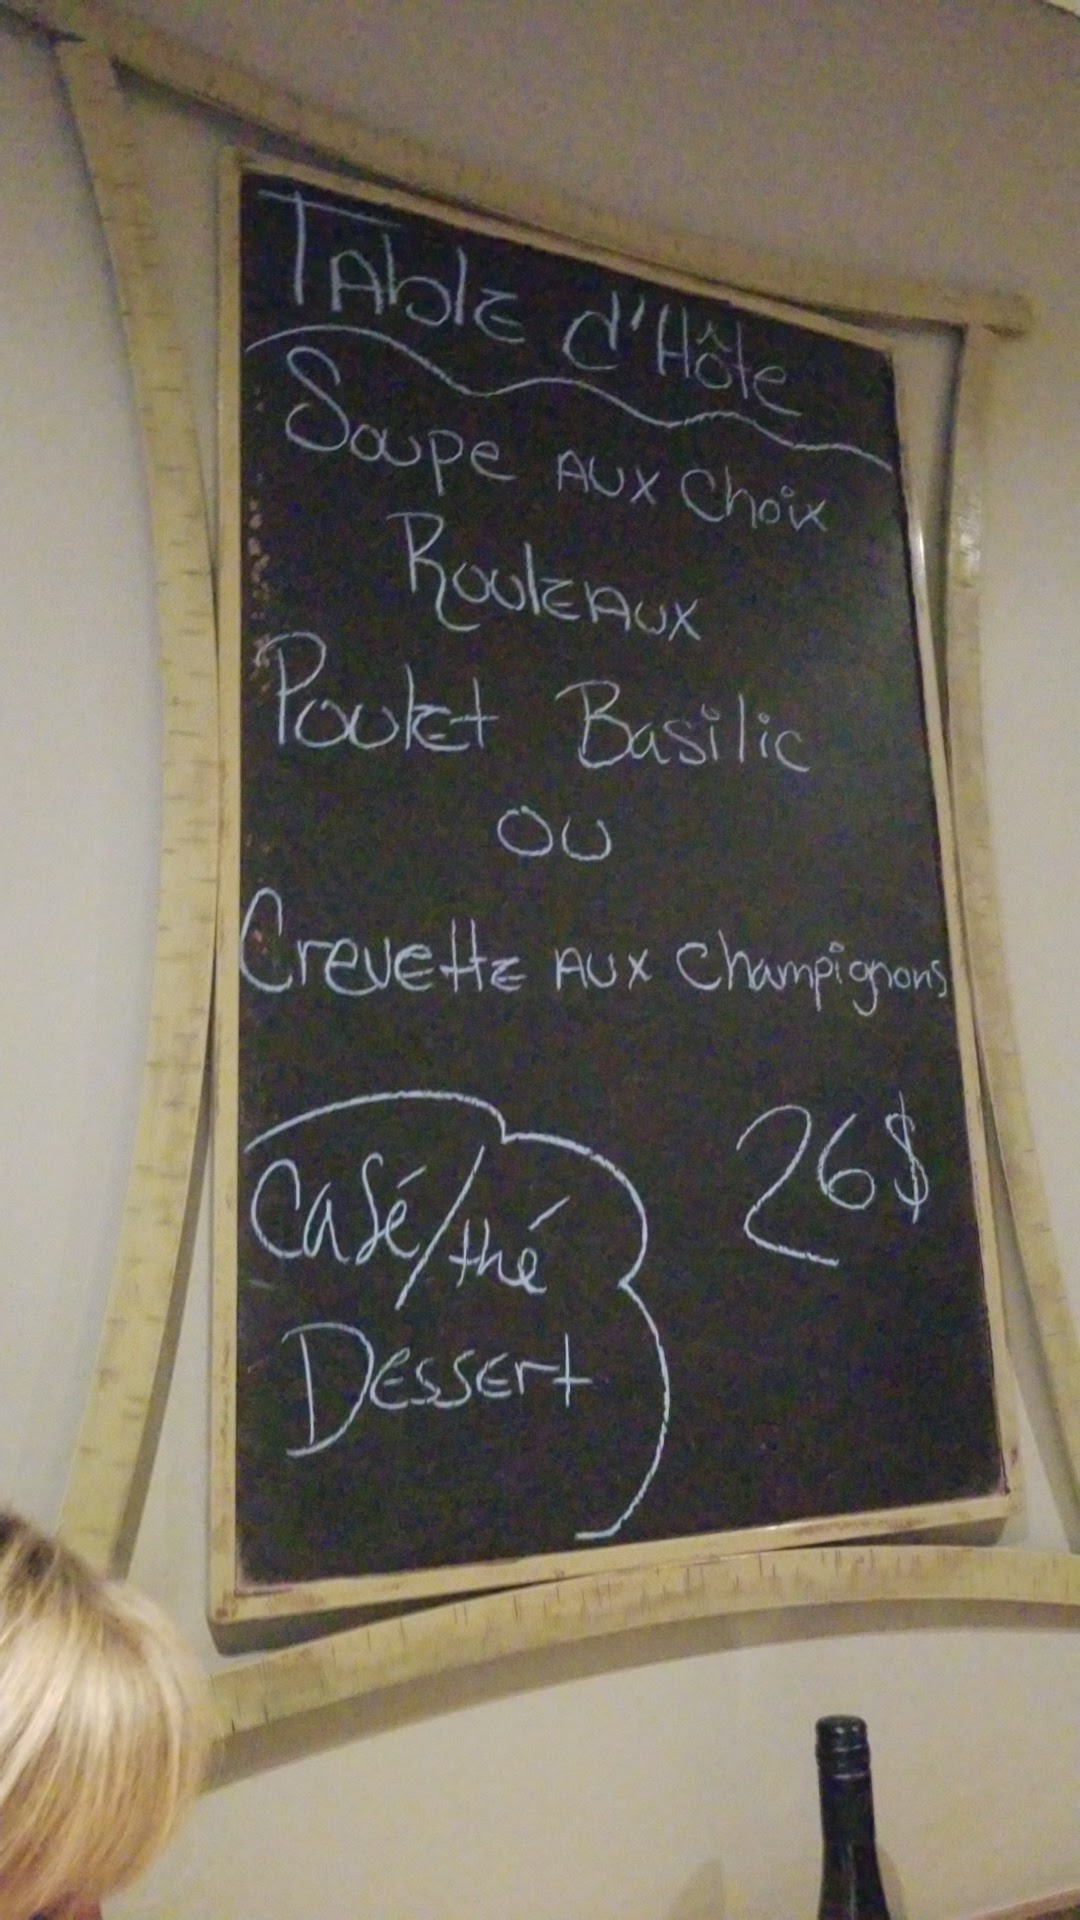 Table d'Hôte
Soupe aux choix
Rouleaux
Poulet Basilic
ou
Crevette aux champignons
26$
Café/thé
Dessert